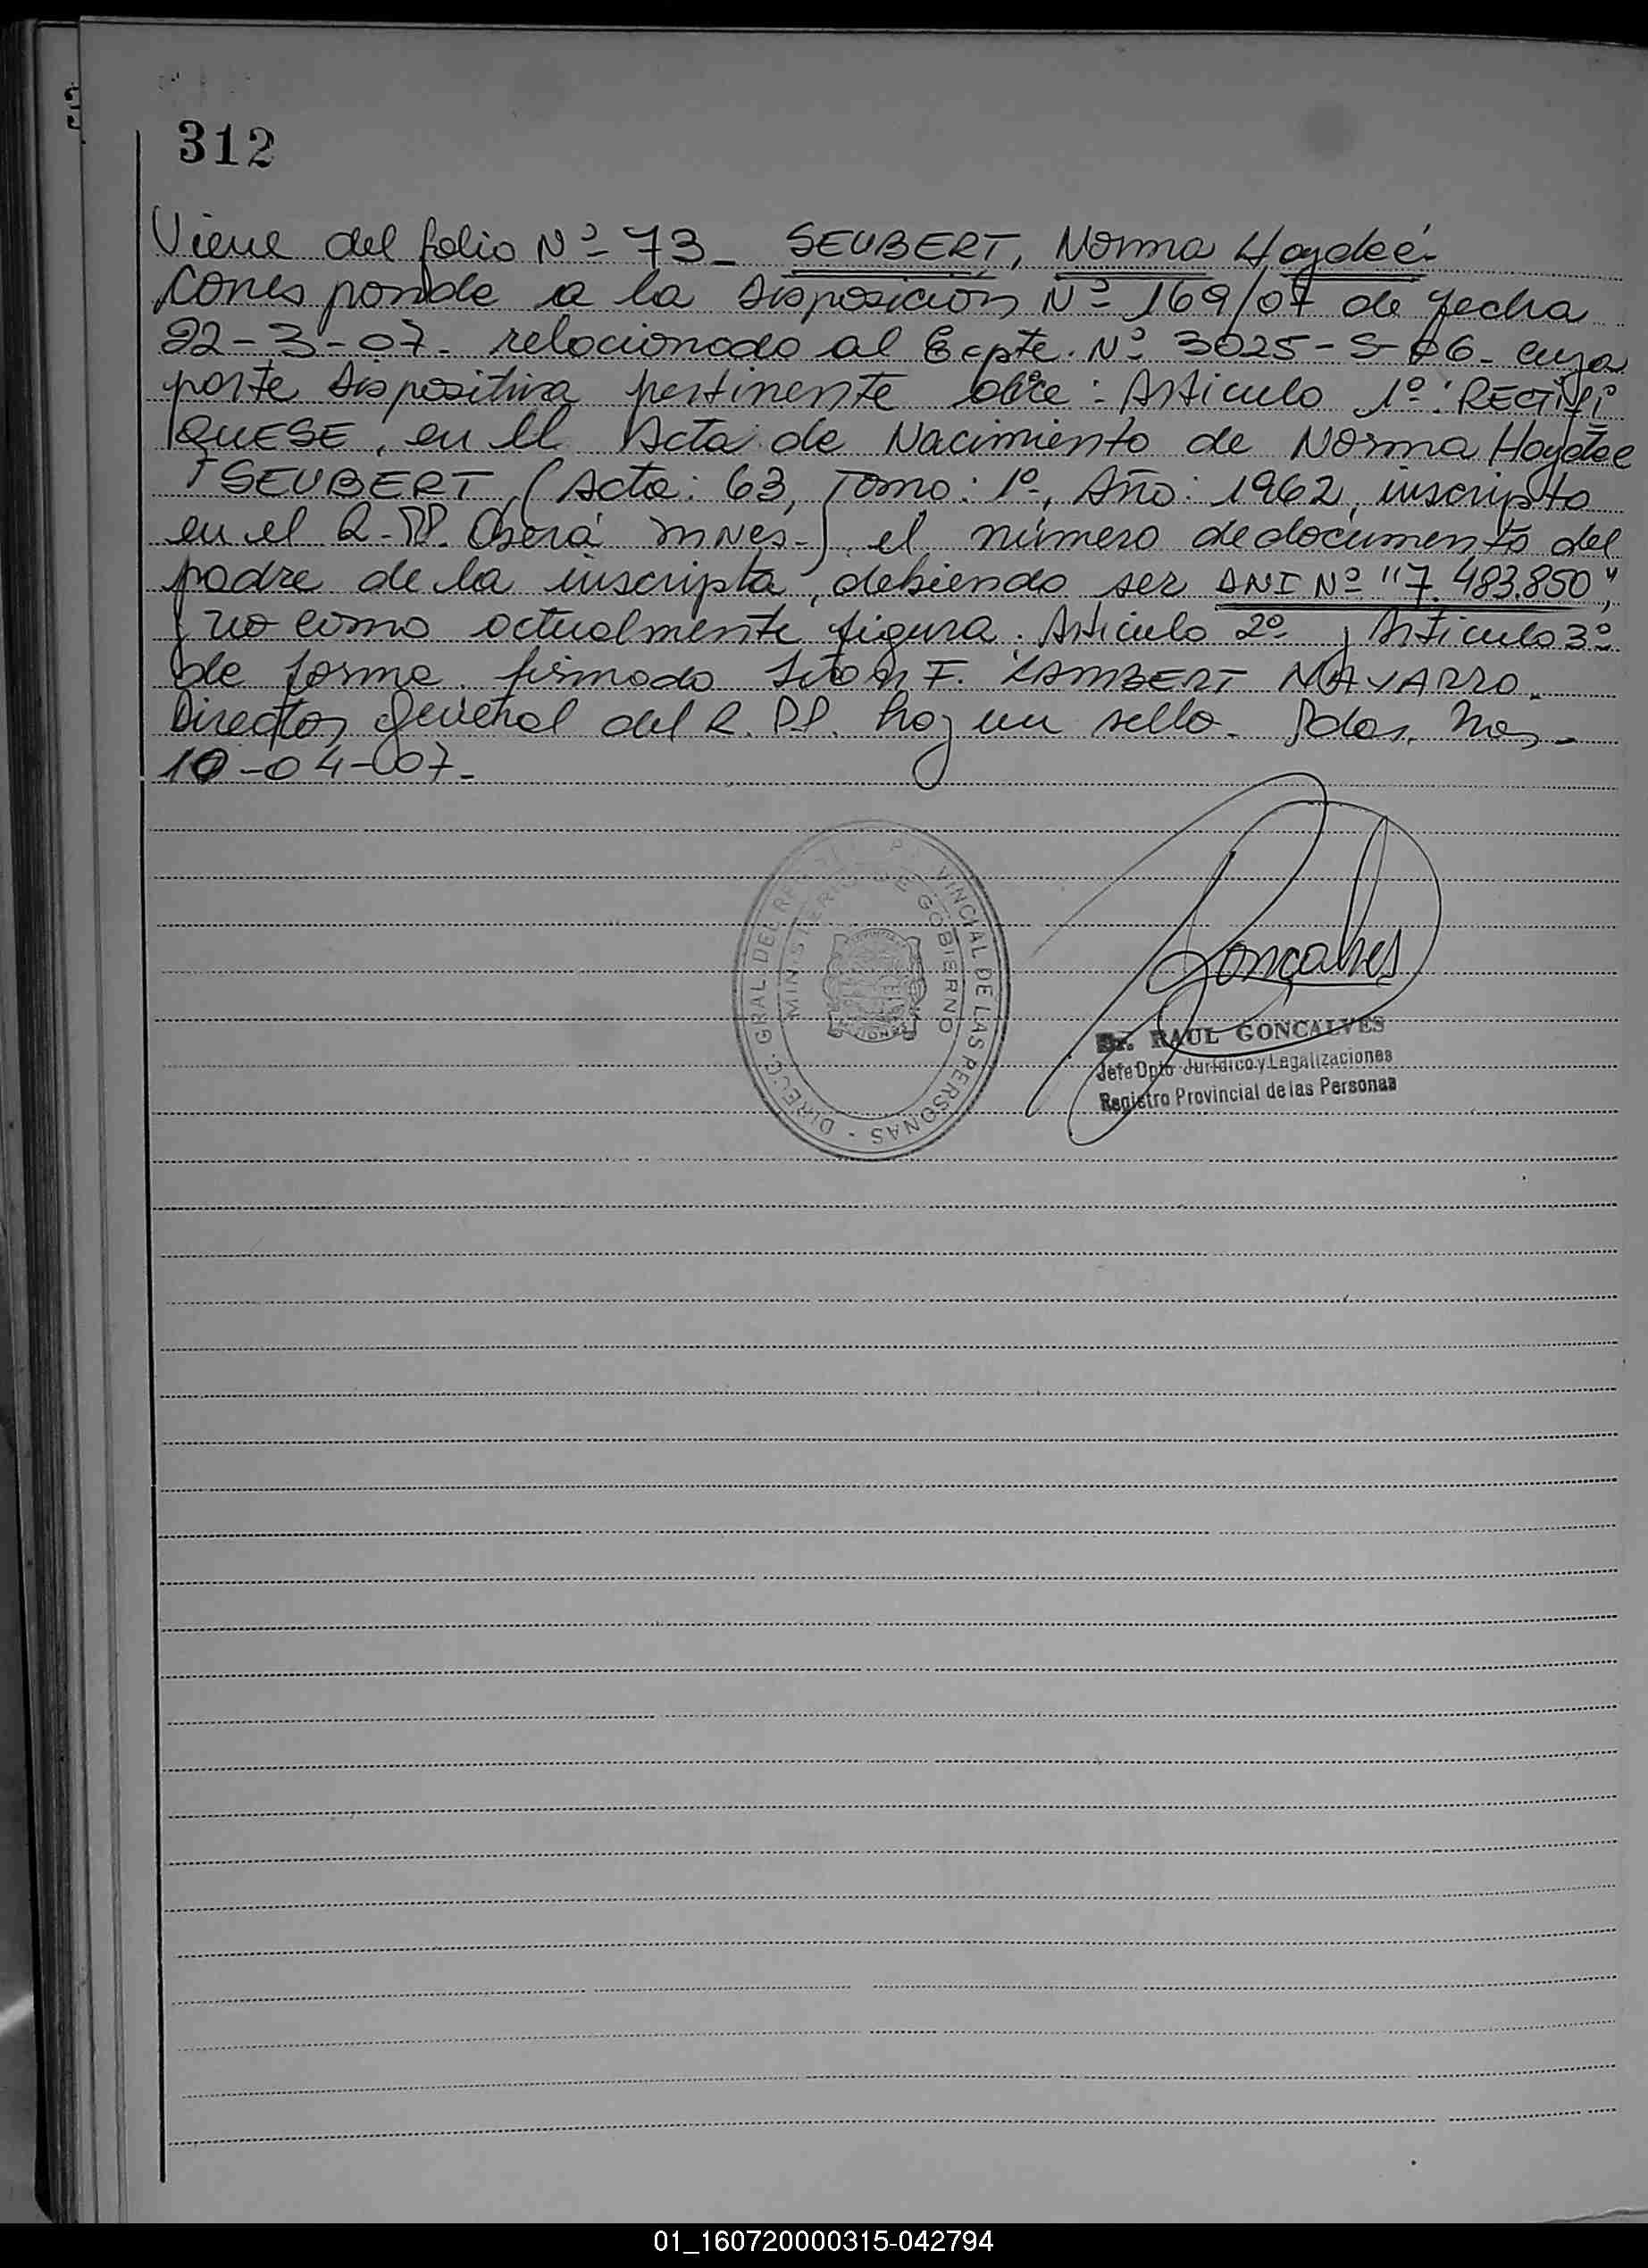 312
Viene del folio Nº 73_ SEUBERT, Norma Haydeé.
Corresponde a la Disposición Nº 169/07 de fecha
22-3-07- relacionado al Expte. Nº 3025-S-06- cuya
parte dispositiva pertinente dice: Artículo 1º: RECTIFI
QUESE, en el Acta de Nacimiento de Norma Haydee
SEUBERT (Acta: 63, Tomo: 1º, Año: 1962, inscripto
en el R.PP. Oberá Mnes-) el número de documento del
padre de la inscripta, debiendo ser DNI Nº "7.483.850",
y no como actualmente figura. Artículo 2º y Artículo 3º
de forma. firmado F. LAMBERT NAVARRO.
Director General del R.PP. hay un sello. Pdas. Mnes.
10-04-07-
DIRECC. GRAL DEL REG. PROVINCIAL DE LAS PERSONAS -
MINISTERIO DE GOBIERNO
Goncalves
Dr. RAUL GONCALVES
Jefe Dpto Jurídico y Legalizaciones
Registro Provincial de las Personas
01_160720000315-042794